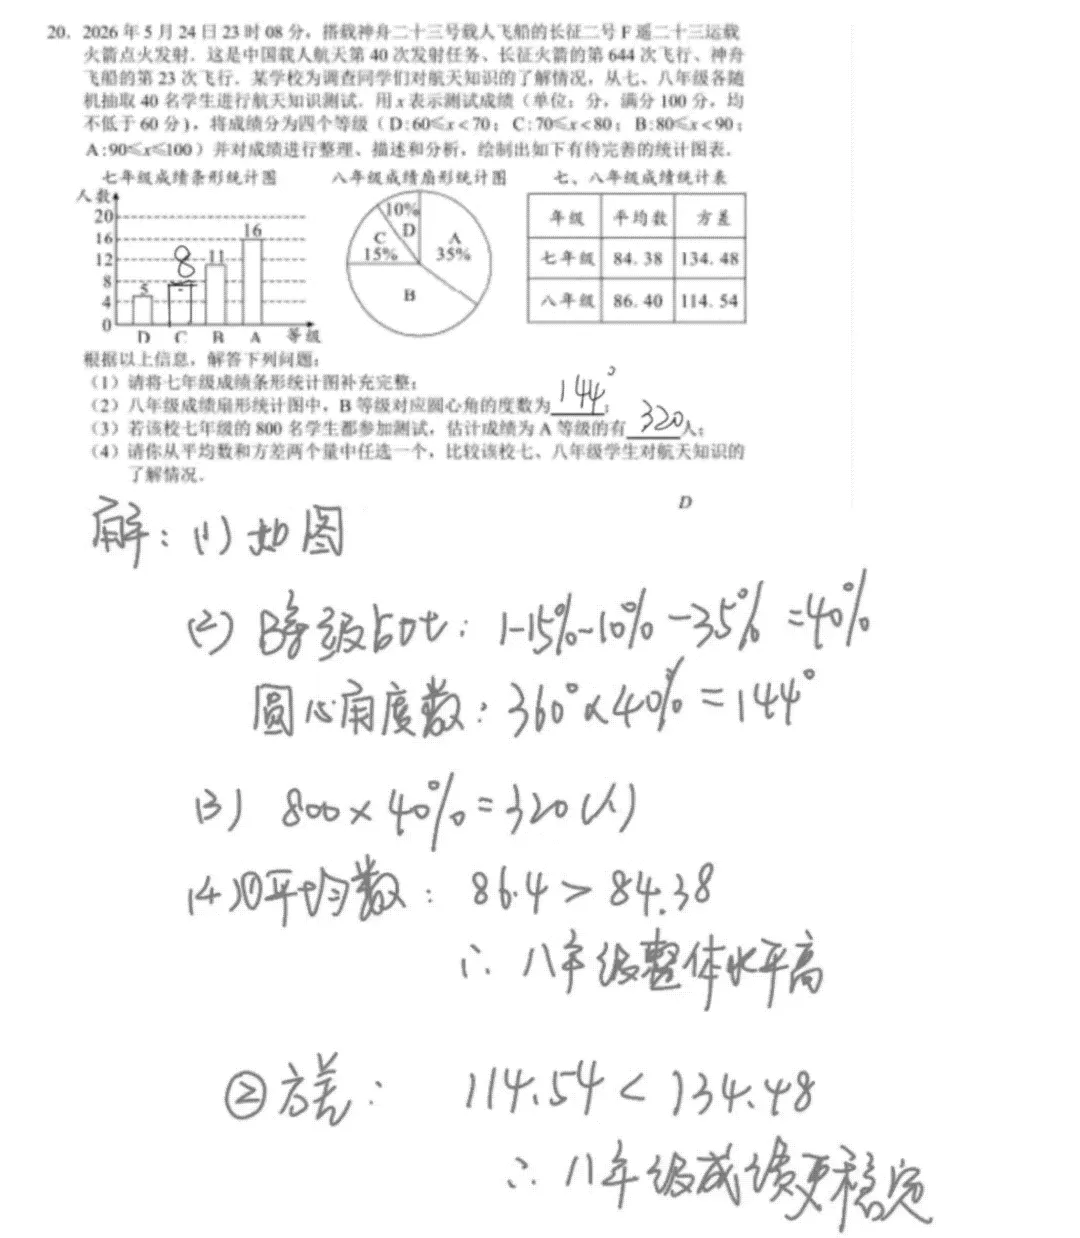 20. 2026年5月24日23时08分，搭载神舟二十三号载人飞船的长征二号F遥二十三运载
火箭点火发射．这是中国载人航天第40次发射任务、长征火箭的第644次飞行、神舟
飞船的第23次飞行．某学校为调查同学们对航天知识的了解情况，从七、八年级各随
机抽取40名学生进行航天知识测试．用x表示测试成绩（单位：分，满分100分，均
不低于60分），将成绩分为四个等级（D:60≤x<70；C:70≤x<80；B:80≤x<90；
A:90≤x≤100）并对成绩进行整理、描述和分析，绘制出如下有待完善的统计图表．
七年级成绩条形统计图
人数
20
16
12
8
4
0
5
8
11
16
D C B A 等级
八年级成绩扇形统计图
10%
D
C
15%
A
35%
B
七、八年级成绩统计表
年级 平均数 方差
七年级 84.38 134.48
八年级 86.40 114.54
根据以上信息，解答下列问题：
（1）请将七年级成绩条形统计图补充完整；
（2）八年级成绩扇形统计图中，B等级对应圆心角的度数为144°；
（3）若该校七年级的800名学生都参加测试，估计成绩为A等级的有320人；
（4）请你从平均数和方差两个量中任选一个，比较该校七、八年级学生对航天知识的
了解情况．
D
解：(1) 如图
(2) B等级占比：1-15%-10%-35%=40%
圆心角度数：360°×40%=144°
(3) 800×40%=320(人)
(4)①平均数：86.4>84.38
∴八年级整体水平高
②方差：114.54<134.48
∴八年级成绩更稳定